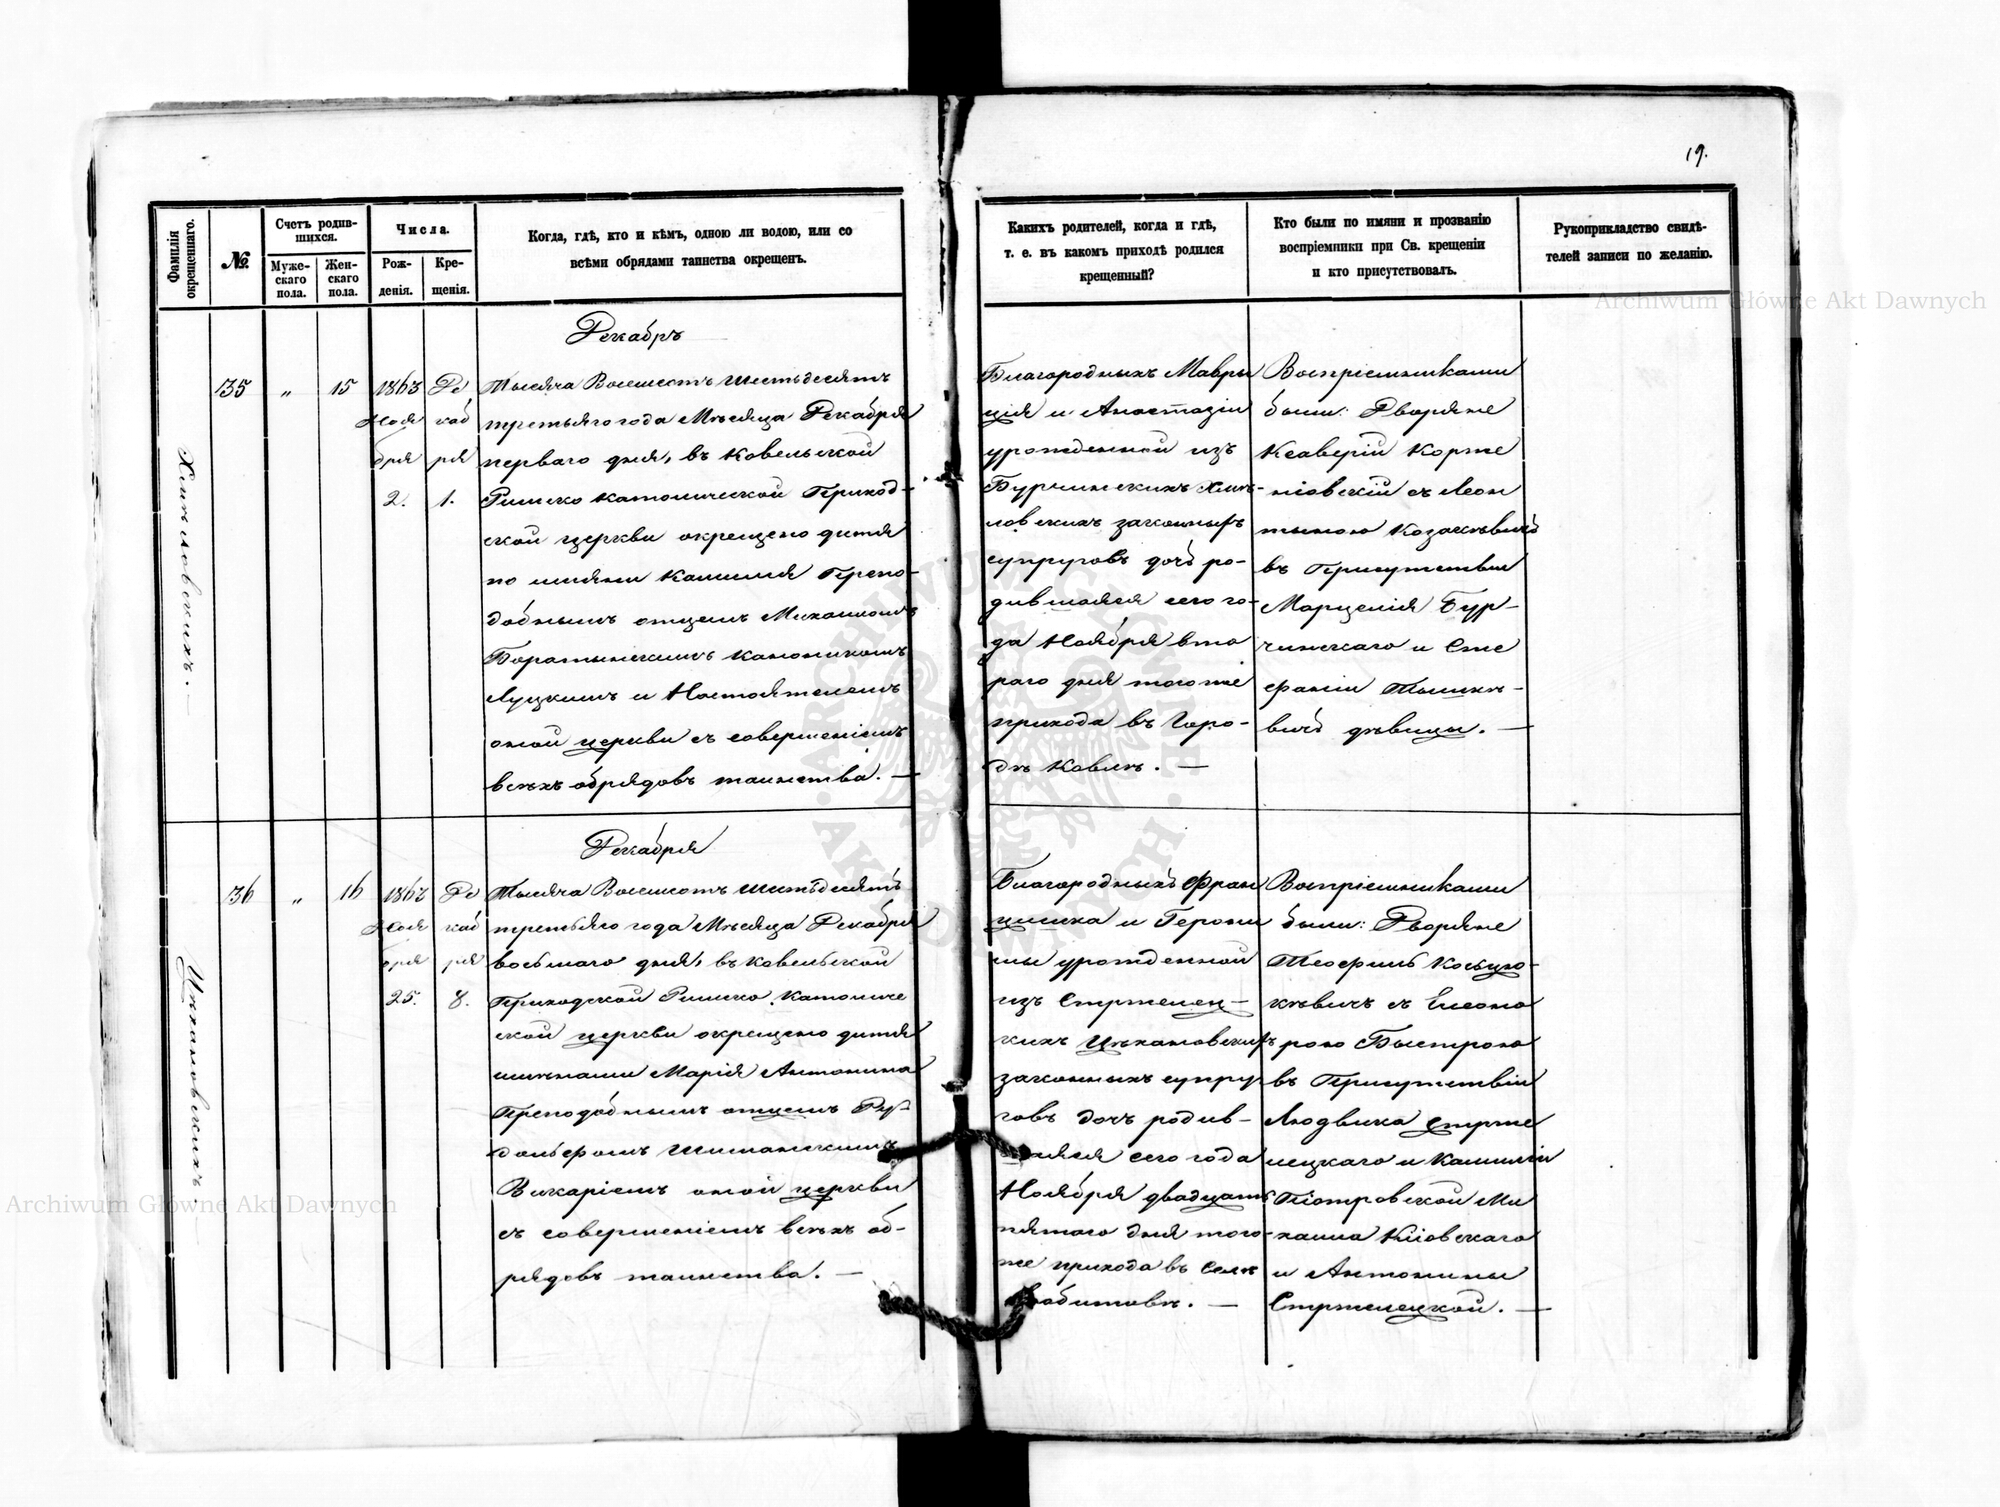 19.
Фамилія
окрещеннаго.
№.
Счетъ родив-
шихся.
Муже-
скаго
пола.
Жен-
скаго
пола.
Числа.
Рож-
денія.
Кре-
щенія.
Когда, гдѣ, кто и кѣмъ, одною ли водою, или со
всѣми обрядами таинства окрещенъ.
Какихъ родителей, когда и гдѣ,
т. е. въ какомъ приходѣ родился
крещенный?
Кто были по имяни и прозванію
воспріемники при Св. крещеніи
и кто присутствовалъ.
Рукоприкладство свидѣ-
телей записи по желанію.
Хмѣловскихъ. —
35
"
15
1863
Ноя
бря
2.
Де
каб
ря
1.
Декабрь
Тысяча Восемсотъ шестьдесятъ
третьяго года Мѣсяца Декабря
перваго дня, въ Ковельской
Римско католической Приход-
ской церкви окрещено дитя
по имяни Камилія Препо-
добнымъ отцемъ Михаиломъ
Баратынскимъ каноникомъ
Луцкимъ и Настоятелемъ
оной церкви съ совершеніемъ
всѣхъ обрядовъ таинства. —
Благородныхъ Маври
ція и Анастазіи
урожденной изъ
Бурчинскихъ Хмѣ-
ловскихъ законныхъ
супруговъ дочь ро-
дившаяся сего го-
да Ноября вто
раго дня того же
прихода въ Горо-
дѣ Ковлѣ. —
Воспріемниками
были: Дворяне
Ксаверій Корже
ніовскій съ Леон
тыною Козакѣвичъ
въ Присутствіи
Марцелія Бур-
чинскаго и Сте
фаніи Тышкѣ-
вичъ дѣвицы. —
Цѣхановскихъ. —
36
"
16
1863
Ноя
бря
25.
Де
каб
ря
8.
Декабря
Тысяча Восемсотъ шестьдесятъ
третьяго года Мѣсяца Декабря
восьмаго дня, въ Ковельской
Приходской Римско Католиче
ской церкви окрещено дитя
имѣнами Марія Антонина
Преподобнымъ отцемъ Ру-
дольфомъ Шиманскимъ
Викаріемъ оной церкви
съ совершеніемъ всѣхъ об-
рядовъ таинства. —
Благородныхъ Фран
цишка и Герони
мы урожденной
изъ Стржелец-
кихъ Цѣхановскихъ
законныхъ супру
говъ дочь родив-
шаяся сего года
Ноября двадцать
пятаго дня того-
же прихода въ Селѣ
Любитовѣ. —
Воспріемниками
были: Дворяне
Теофиль Косцю-
кѣвичъ съ Елеоно
рою Быстрою
въ Присутствіи
Людвика Стрже
лецкаго и Камиліи
Піотровской Ми
хаила Кіовскаго
и Антонины
Стржелецкой. —
Archiwum Główne Akt Dawnych
Archiwum Główne Akt Dawnych
ARCHIWUM GŁÓWNE AKT DAWNYCH